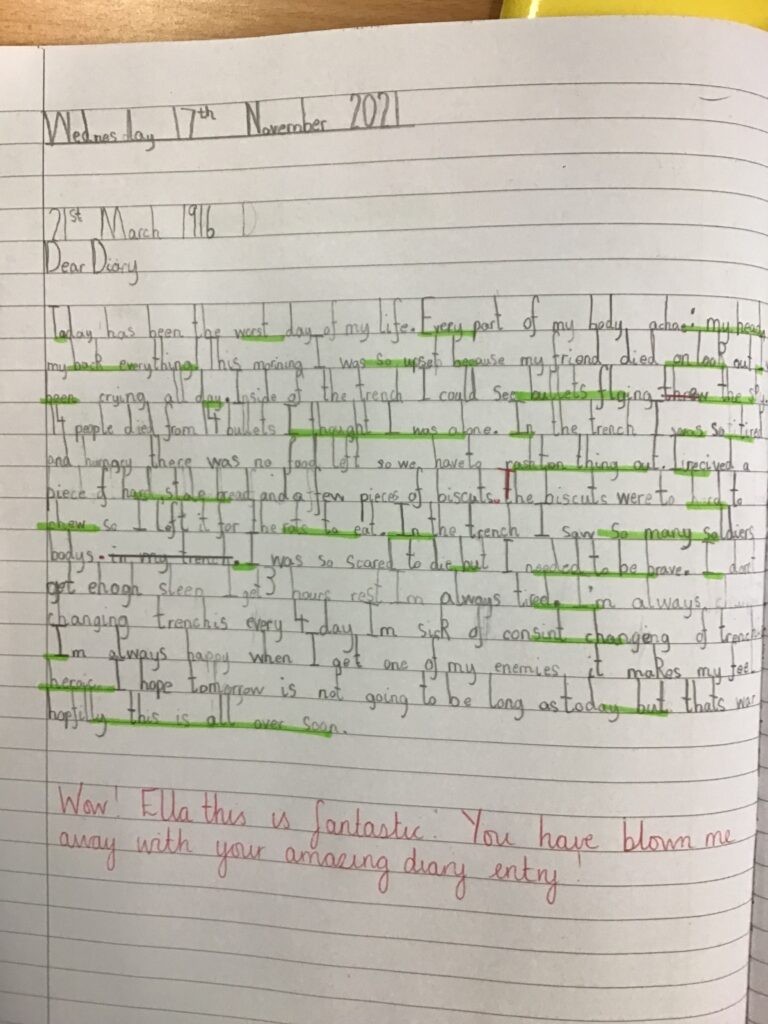 Wednesday 17th November 2021
21st March 1916 D
Dear Diary
Today has been the worst day of my life. Every part of my body achae: my head
my back everything. This morning I was so upset because my friend died on look out
been crying all day. Inside of the trench I could see bullets flying threw the
14 people died from 14 bullets I thought I was alone. In the trench I was so tired
and hungry there was no food left so we haveto rashton thing out. I recived a
piece of hard stale bread and a few pieces of biscuts. The biscuts were to hard to
chew so I left it for the rats to eat. In the trench I saw so many soldiers
bodys. in my trench. I was so scared to die but I needed to be brave. I don't
get enogh sleep I get 3 hours rest Im always tired. I'm always
changing trenchis every 4 day Im sick of consint changeng of trenches
Im always happy when I get one of my enemies it makes my feel
heroic. I hope tomorrow is not going to be long as today but thats war
hopfilly this is all over soon.
Wow! Ella this is fantastic. You have blown me
away with your amazing diary entry!